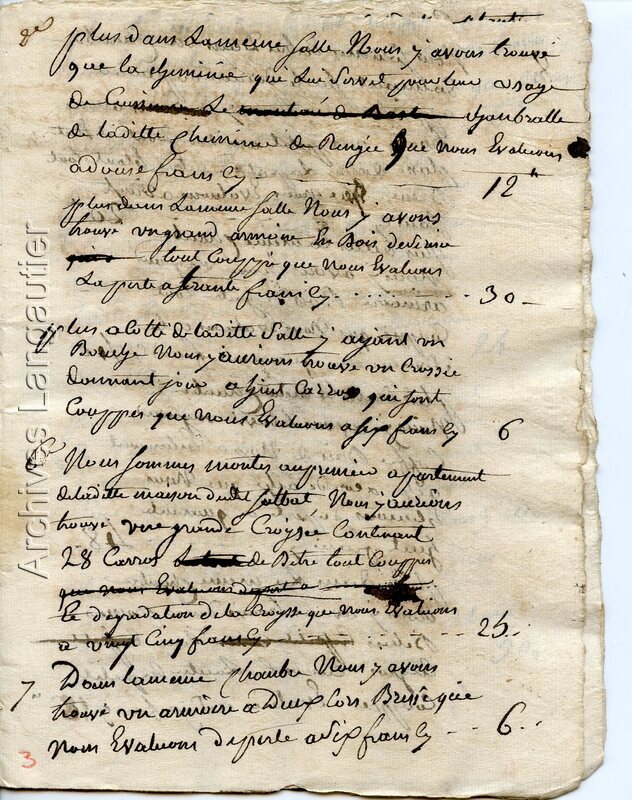 3e
plus dans la meme salle Nous y avons trouvé
que la cheminée qui lui servet pour leur usage
de Cuisine Le
de laditte Cheminée du Rengée que nous Evaluons
a douse frans Cy 12"
plus dans la meme salle Nous y avons
trouvé un grand armoire En Bois de
tout Couppé que nous Evaluons
La perte a trante frans Cy 30-
plus a Cotté de laditte Salle y ajant un
Nous y aurions trouvé un Croisée
donnant jour a huit Carros qui sont
Couppes que nous Evaluons a six frans Cy 6
Nous sommes montes au premier apartement
de laditte maison dudit Salbat Nous y aurions
trouvé une grande Croysée Contenant
28 Carros de Bitre tout Couppes
que nous Evaluons
Le degradation de la Croysse que nous Evaluons
a vingt Cinq frans Cy 25.
7" Dans la meme Chambre Nous y avons
trouvé un armoire a Deux Cors Brissé que
nous Evaluons de perte a six frans Cy 6.
3
Archives Langautier